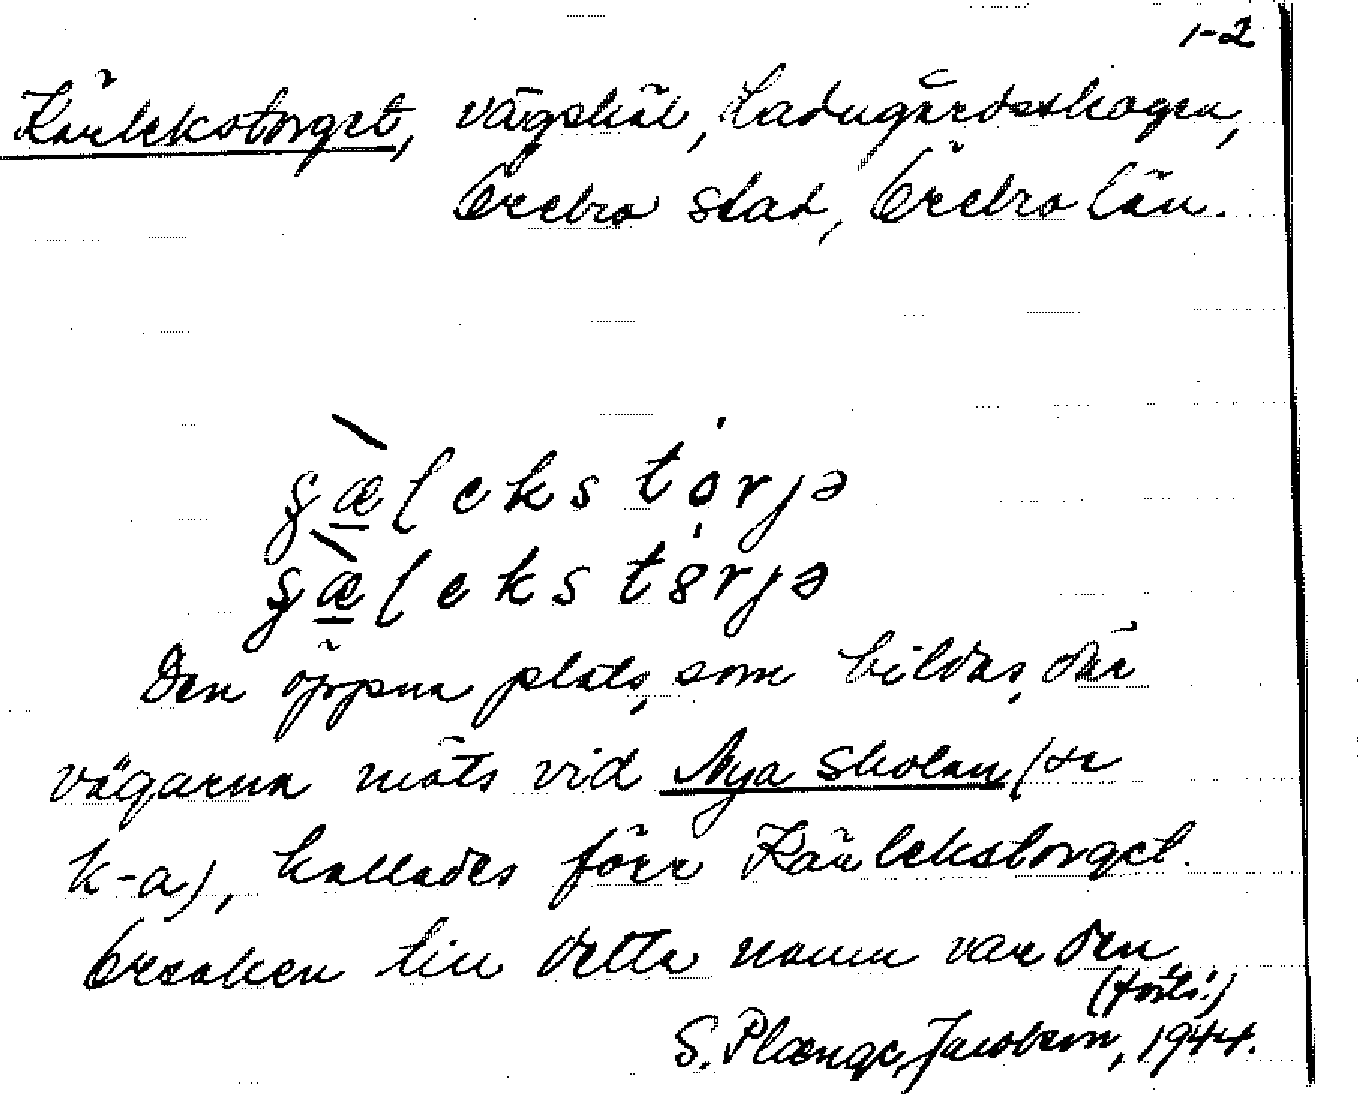 1-2
Kärlekstorget, vägskäl, Ladugårdsskogen,
Örebro stad, Örebro län.
Den öppna plats, som bildas, där
vägarna möts vid Nya Skolan (se
k-a), kallades förr Kärlekstorget.
Orsaken till detta namn var den
(forts.)
S. Plænge Jacobson, 1944.